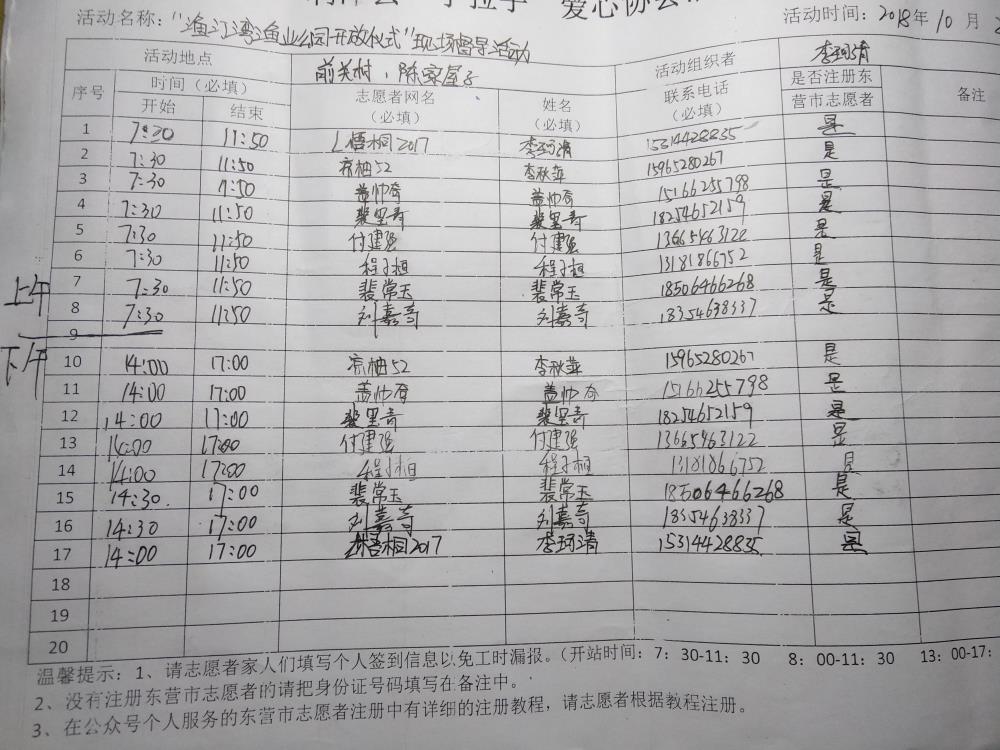 手拉手 爱心协会
活动名称："渔江湾渔业公园开放仪式"现场督导活动 活动时间：2018年10月
活动地点 前关村、陈家屋子 活动组织者 李珂清
序号 时间（必填） 志愿者网名 姓名 联系电话 是否注册东 备注
开始 结束 （必填） （必填） （必填） 营市志愿者
1 7:30 11:50 L梧桐2017 李珂清 15314428835 是
2 7:30 11:50 凉柚52 李秋萍 15965280267 是
3 7:30 11:50 盖帅奇 盖帅奇 15166255798 是
4 7:30 11:50 裴里奇 裴里奇 18254652159 是
5 7:30 11:50 付建强 付建强 13665463122 是
6 7:30 11:50 程子桓 程子桓 13181866752 是
上午
7 7:30 11:50 裴常玉 裴常玉 18506466268 是
8 7:30 11:50 刘嘉奇 刘嘉奇 18354638337 是
9
下午
10 14:00 17:00 凉柚52 李秋萍 15965280267 是
11 14:00 17:00 盖帅奇 盖帅奇 15166255798 是
12 14:00 17:00 裴里奇 裴里奇 18254652159 是
13 14:00 17:00 付建强 付建强 13665463122 是
14 14:00 17:00 程子桓 程子桓 13181866752 是
15 14:30 17:00 裴常玉 裴常玉 18506466268 是
16 14:30 17:00 刘嘉奇 刘嘉奇 18354638337 是
17 14:00 17:00 梧桐2017 李珂清 15314428835 是
18
19
20
温馨提示：1、请志愿者家人们填写个人签到信息以免工时漏报。（开站时间：7：30-11：30 8：00-11：30 13：00-17：
2、没有注册东营市志愿者的请把身份证号码填写在备注中。
3、在公众号个人服务的东营市志愿者注册中有详细的注册教程，请志愿者根据教程注册。